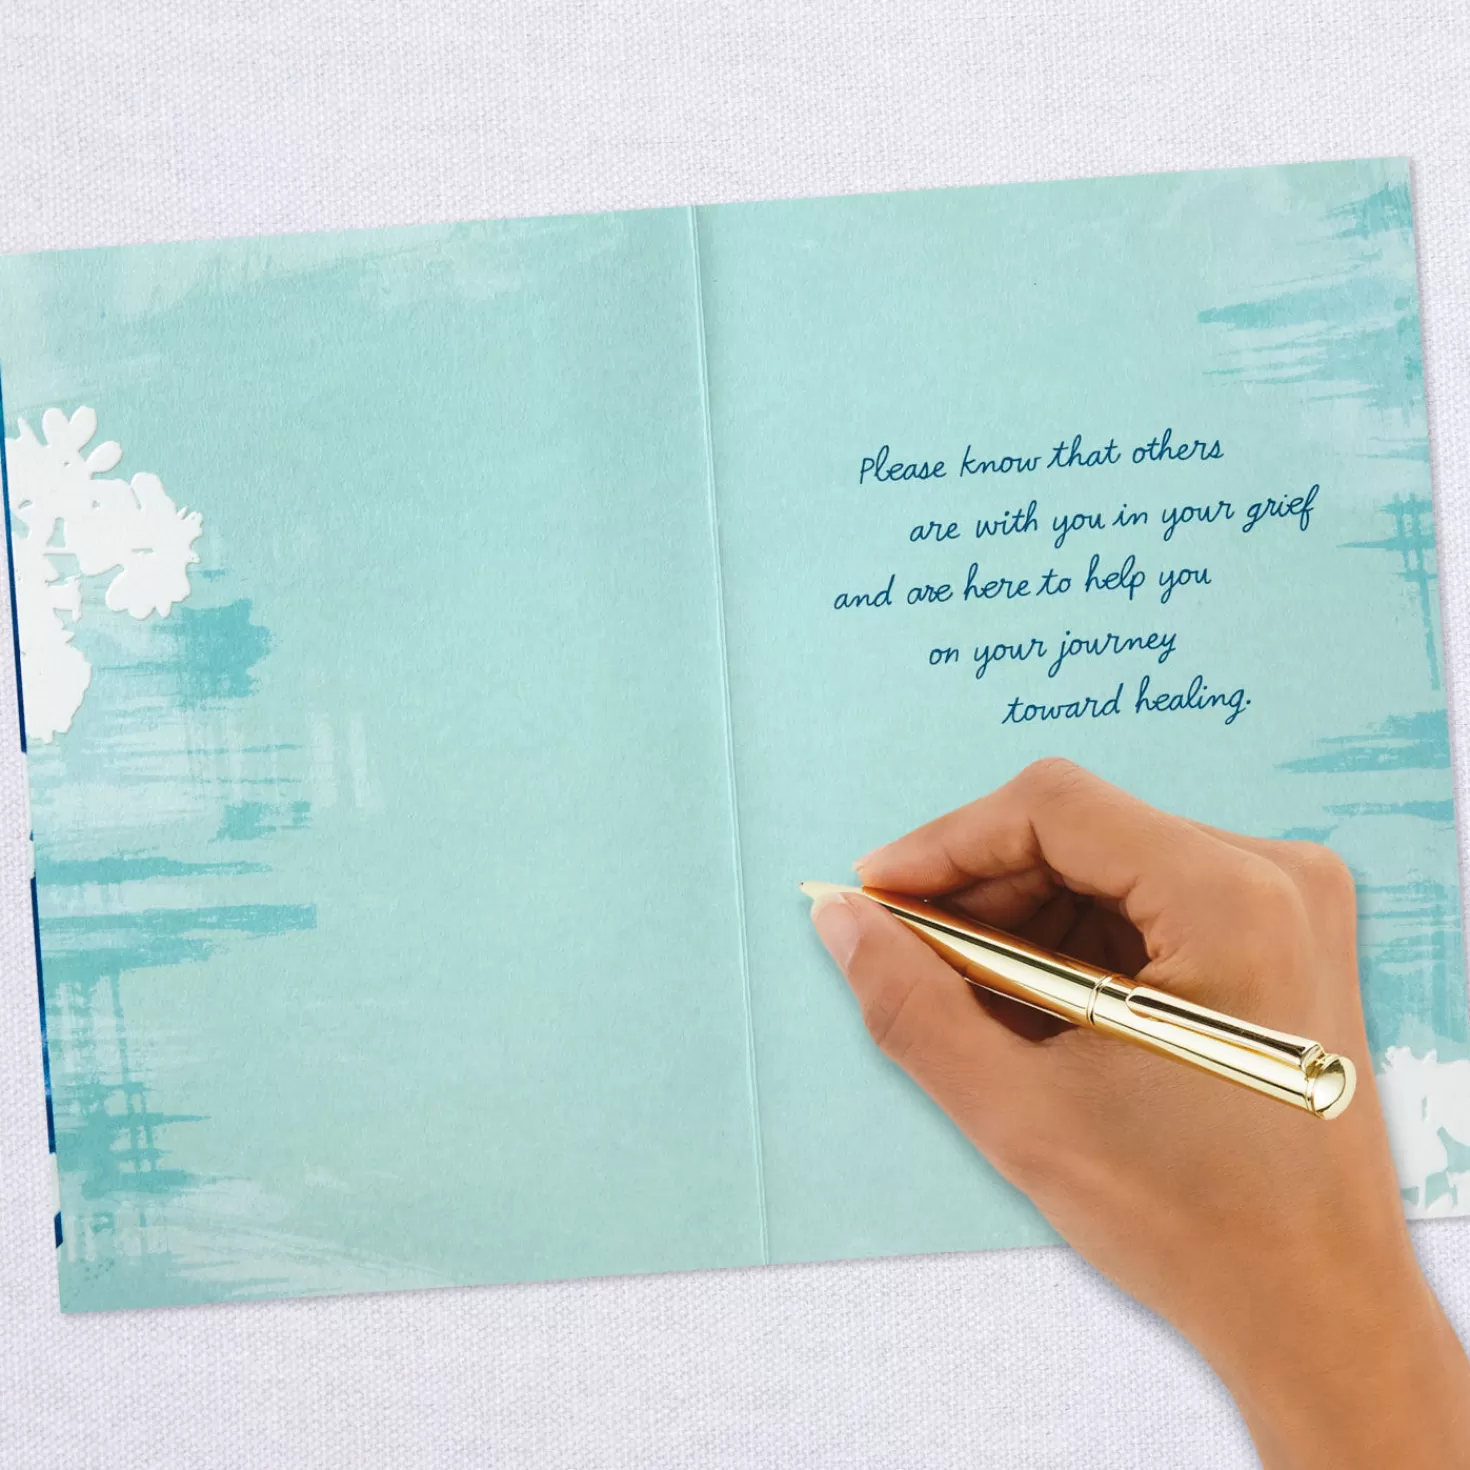 Please know that others
are with you in your grief
and are here to help you
on your journey
toward healing.